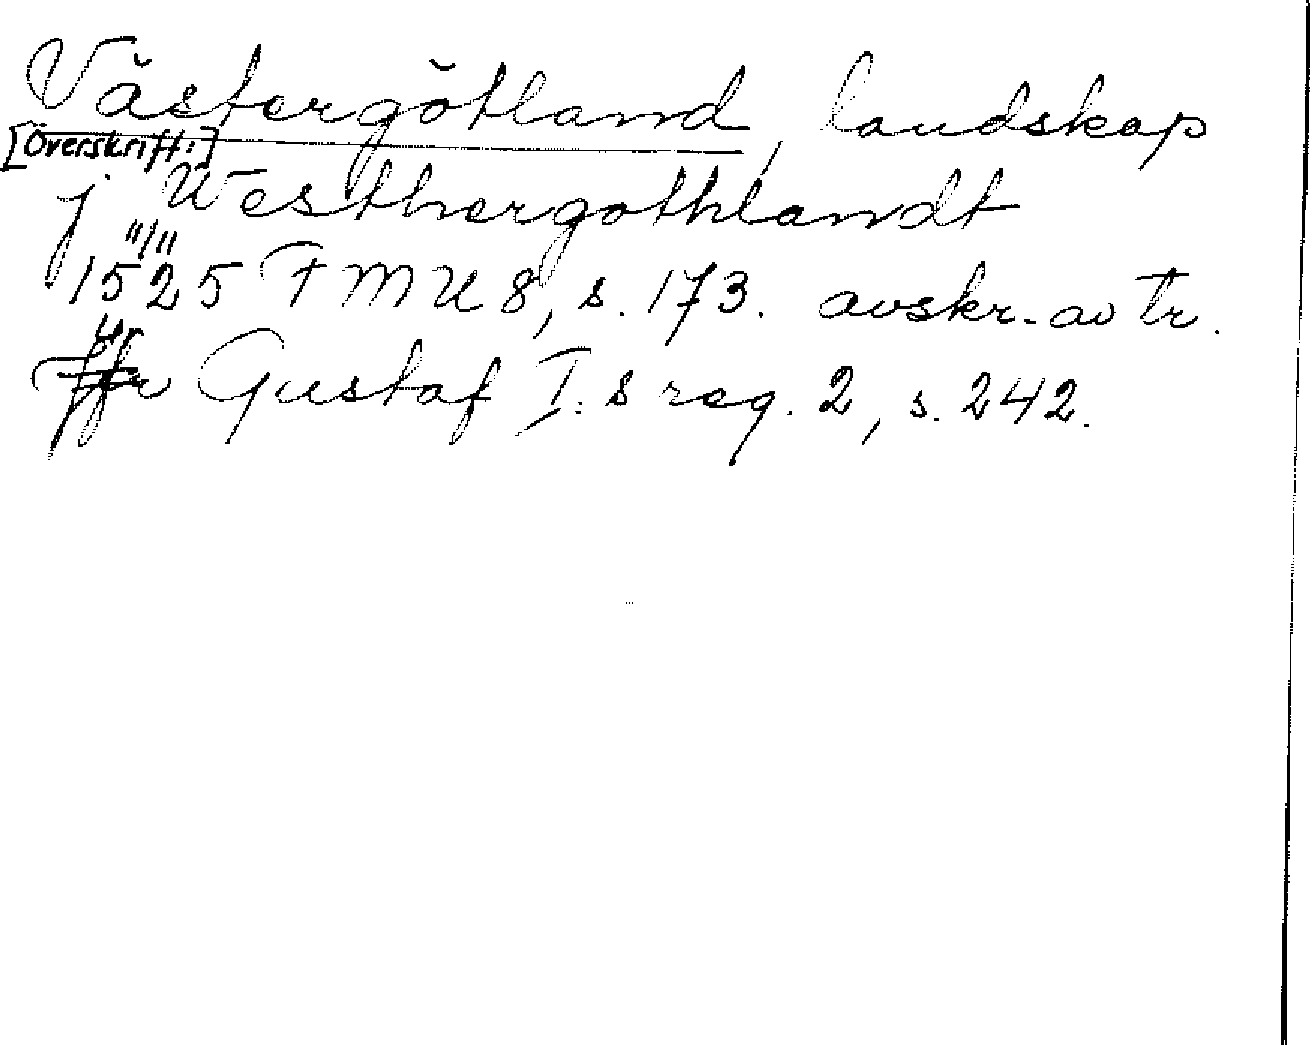 Västergötland, landskap
[Överskrift:]
j Westhergothlandt
"/"
1525 FMU 8, s. 173. avskr. av tr.
ur
Gustaf I:s reg. 2, s. 242.